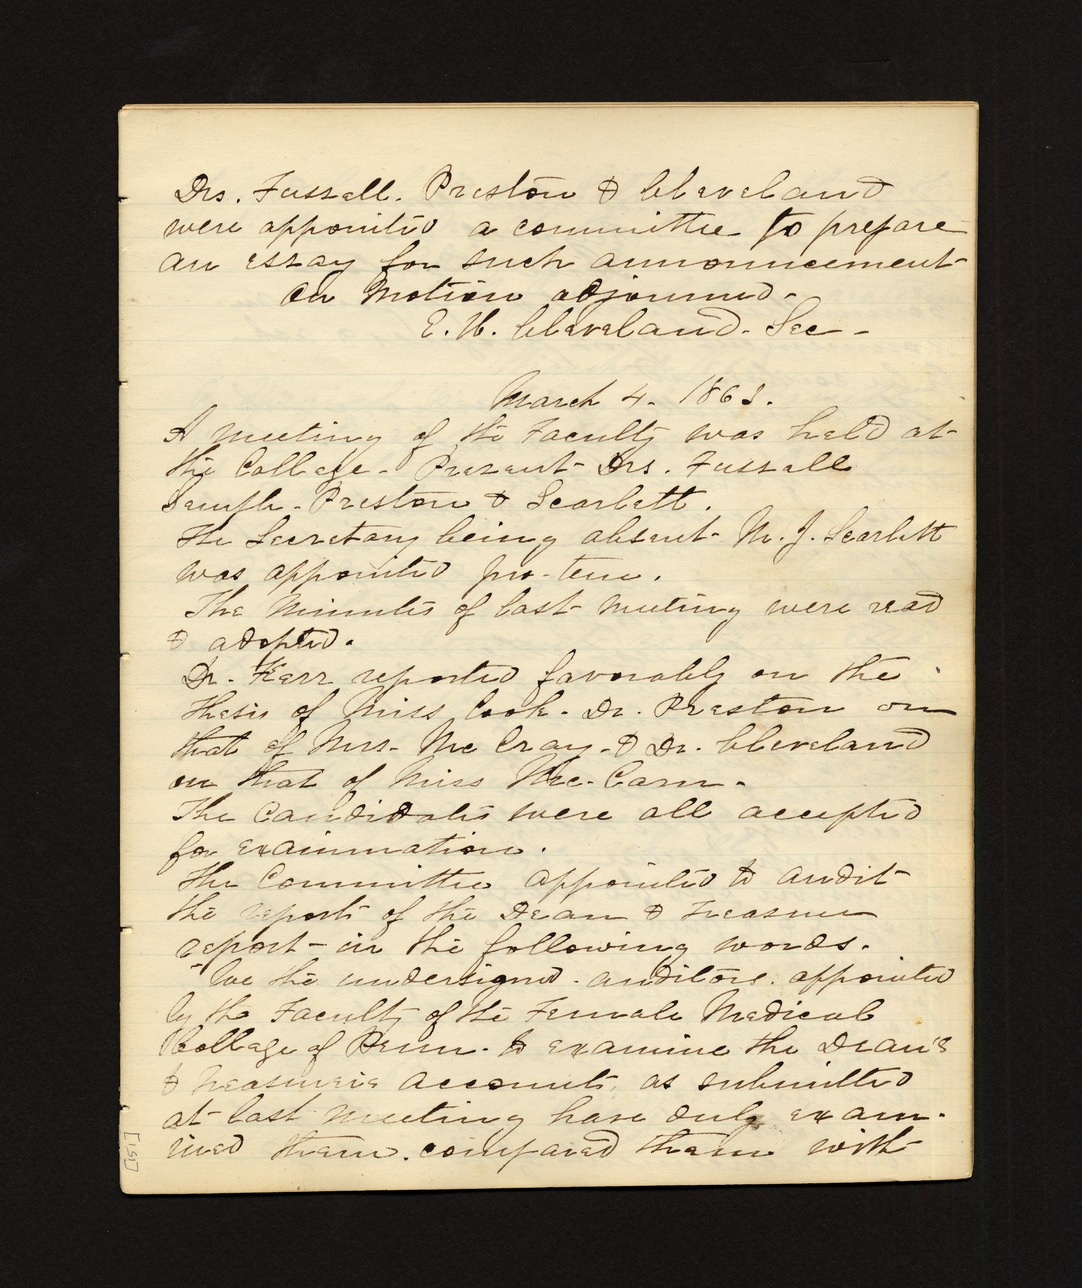 Drs. Fussell. Preston & Cleveland
were appointed a committee to prepare
an essay for such announcement
On Motion adjourned.
E. H. Cleveland. Sec -
March 4. 1863.
A meeting of the Faculty was held at
the College - Present - Drs. Fussell
Sample. Preston & Scarlett.
The Secretary being absent - M. J. Scarlett
was appointed pro-tem.
The Minutes of last meeting were read
& adopted.
Dr. Kerr reported favorably on the
thesis of Miss Cook - Dr. Preston on
that of Mrs. McCray - & Dr. Cleveland
on that of Miss Mc. Carn -
The Candidates were all accepted
for examination.
The Committee appointed to audit
the reports of the Dean & Treasurer
report - in the following words.
"We the undersigned. auditors. appointed
by the Faculty of the Female Medical
College of Penn. to examine the Dean's
& Treasurer's accounts. as submitted
at last meeting have duly exam-
ined them. compared them with
[151]